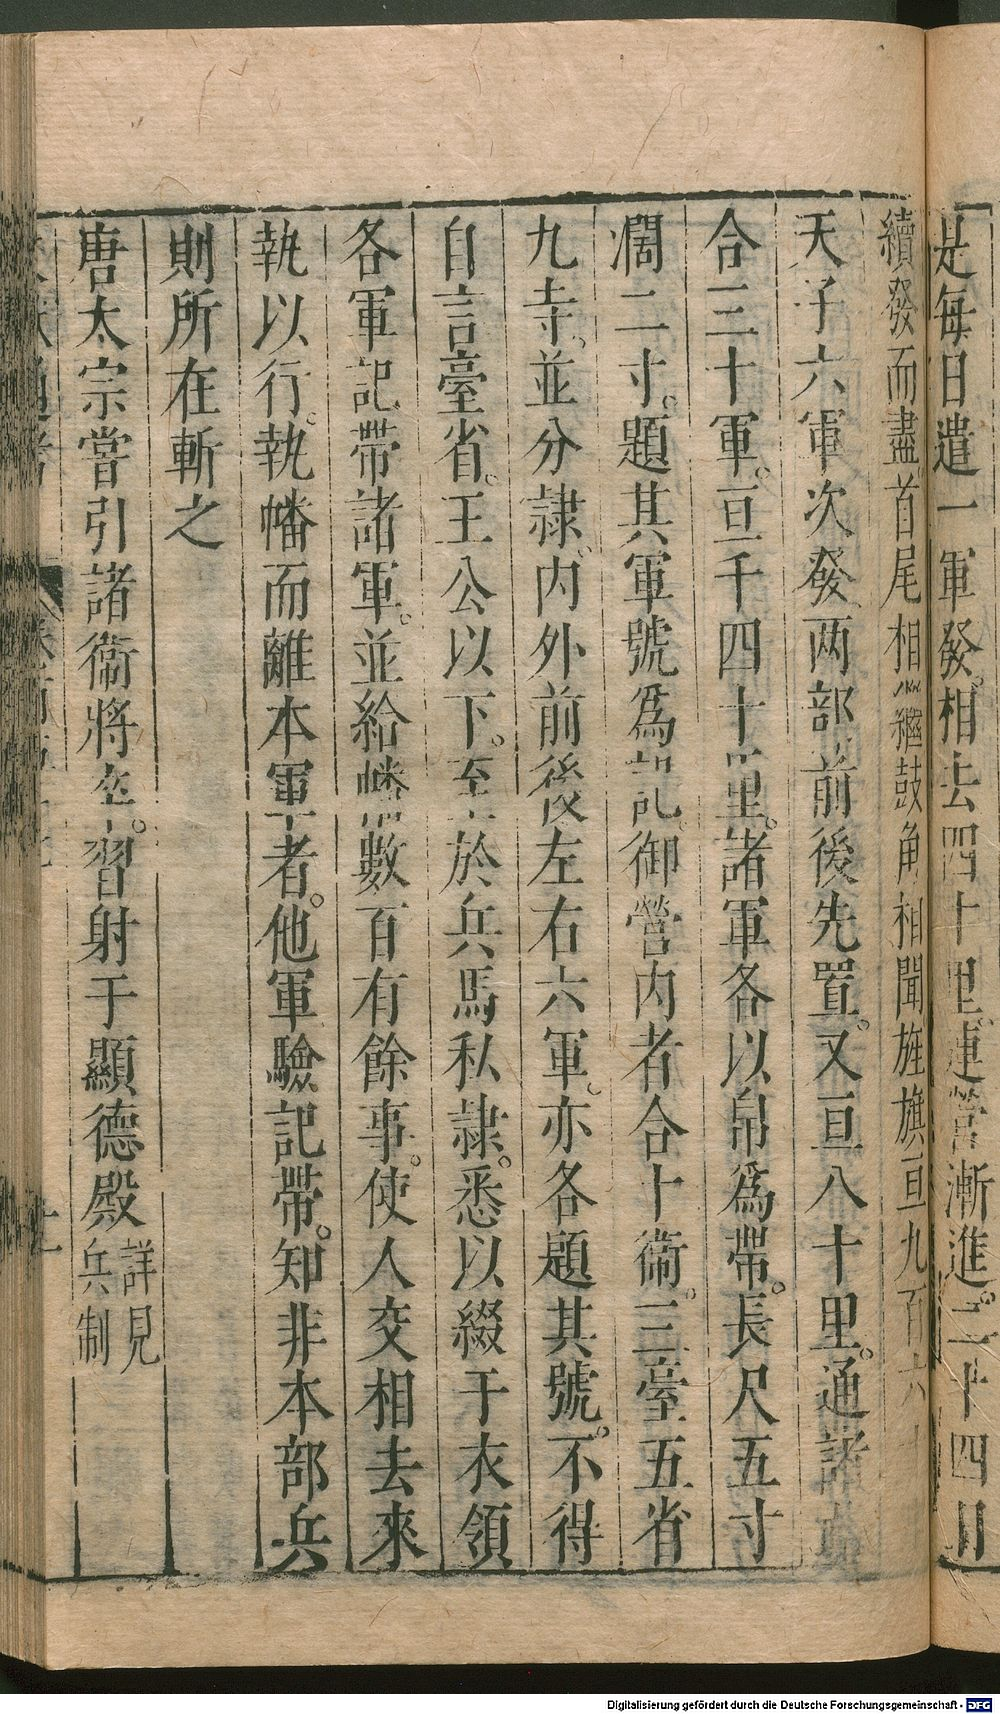 是每日遣一軍發。相去四十里。連營漸進。二十四日
續發而盡。首尾相繼。鼓角相聞。旌旗亘九百六十
天子六軍次發。两部前後先置。又亘八十里。通諸
合三十軍。亘千四十里。諸軍各以帛爲帶。長尺五寸
濶二寸。題其軍號爲記。御營內者合十衞。三臺五省
九寺。並分隷。內外前後左右六軍。亦各題其號。不得
自言臺省。王公以下。至於兵馬私隷。悉以綴于衣領
各軍記帶。諸軍。並給幡數百有餘事。使人交相去來
執以行。執幡而離本軍者。他軍驗記帶。知非本部兵
則所在斬之
唐太宗嘗引諸衞將卒。習射于顯德殿詳見兵制
Digitalisierung gefördert durch die Deutsche Forschungsgemeinschaft - DFG